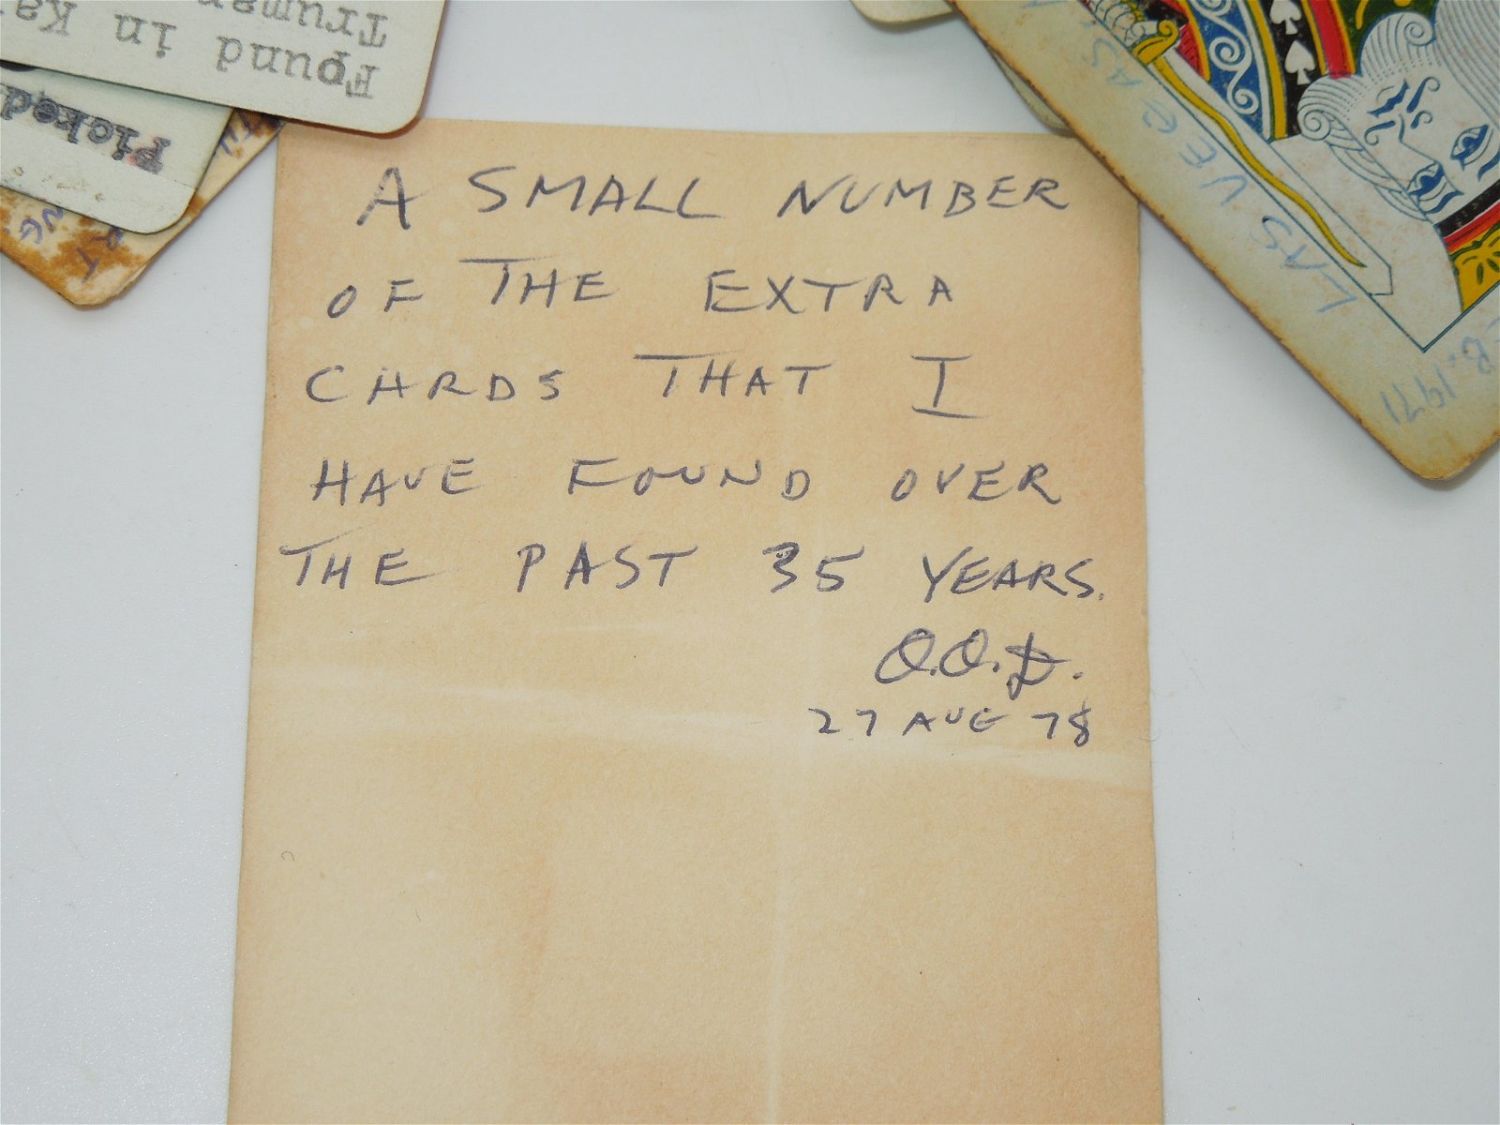 Found in
Picked
A SMALL NUMBER
OF THE EXTRA
CARDS THAT I
HAVE FOUND OVER
THE PAST 35 YEARS.
O.O.D.
27 AUG 78
LAS VEGAS
1971